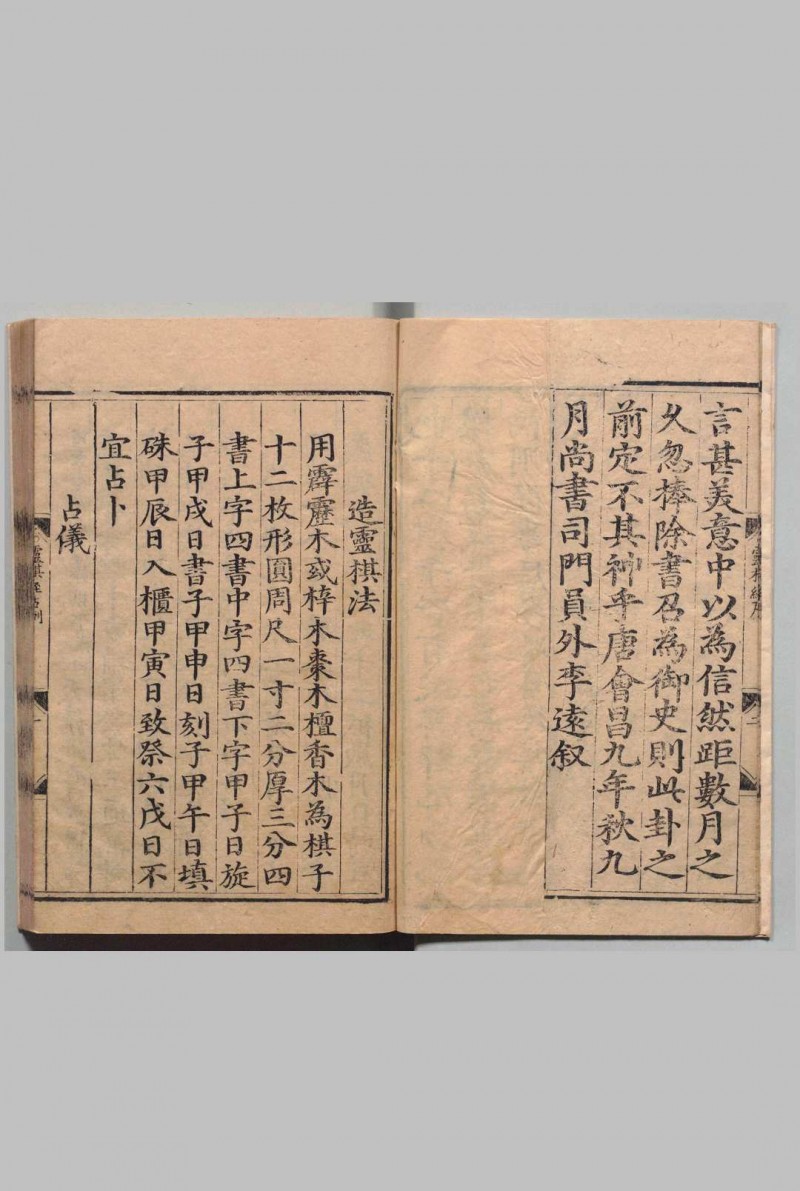 言甚美意中以為信然距數月之
久忽棒除書召為御史則此卦之
前定不其神乎唐會昌九年秋九
月尚書司門員外李遠叙
造靈棋法
用霹靂木或梓木棗木檀香木為棋子
十二枚形圓周尺一寸二分厚三分四
書上字四書中字四書下字甲子日旋
子甲戌日書子甲申日刻子甲午日填
硃甲辰日入櫃甲寅日致祭六戊日不
宜占卜
占儀